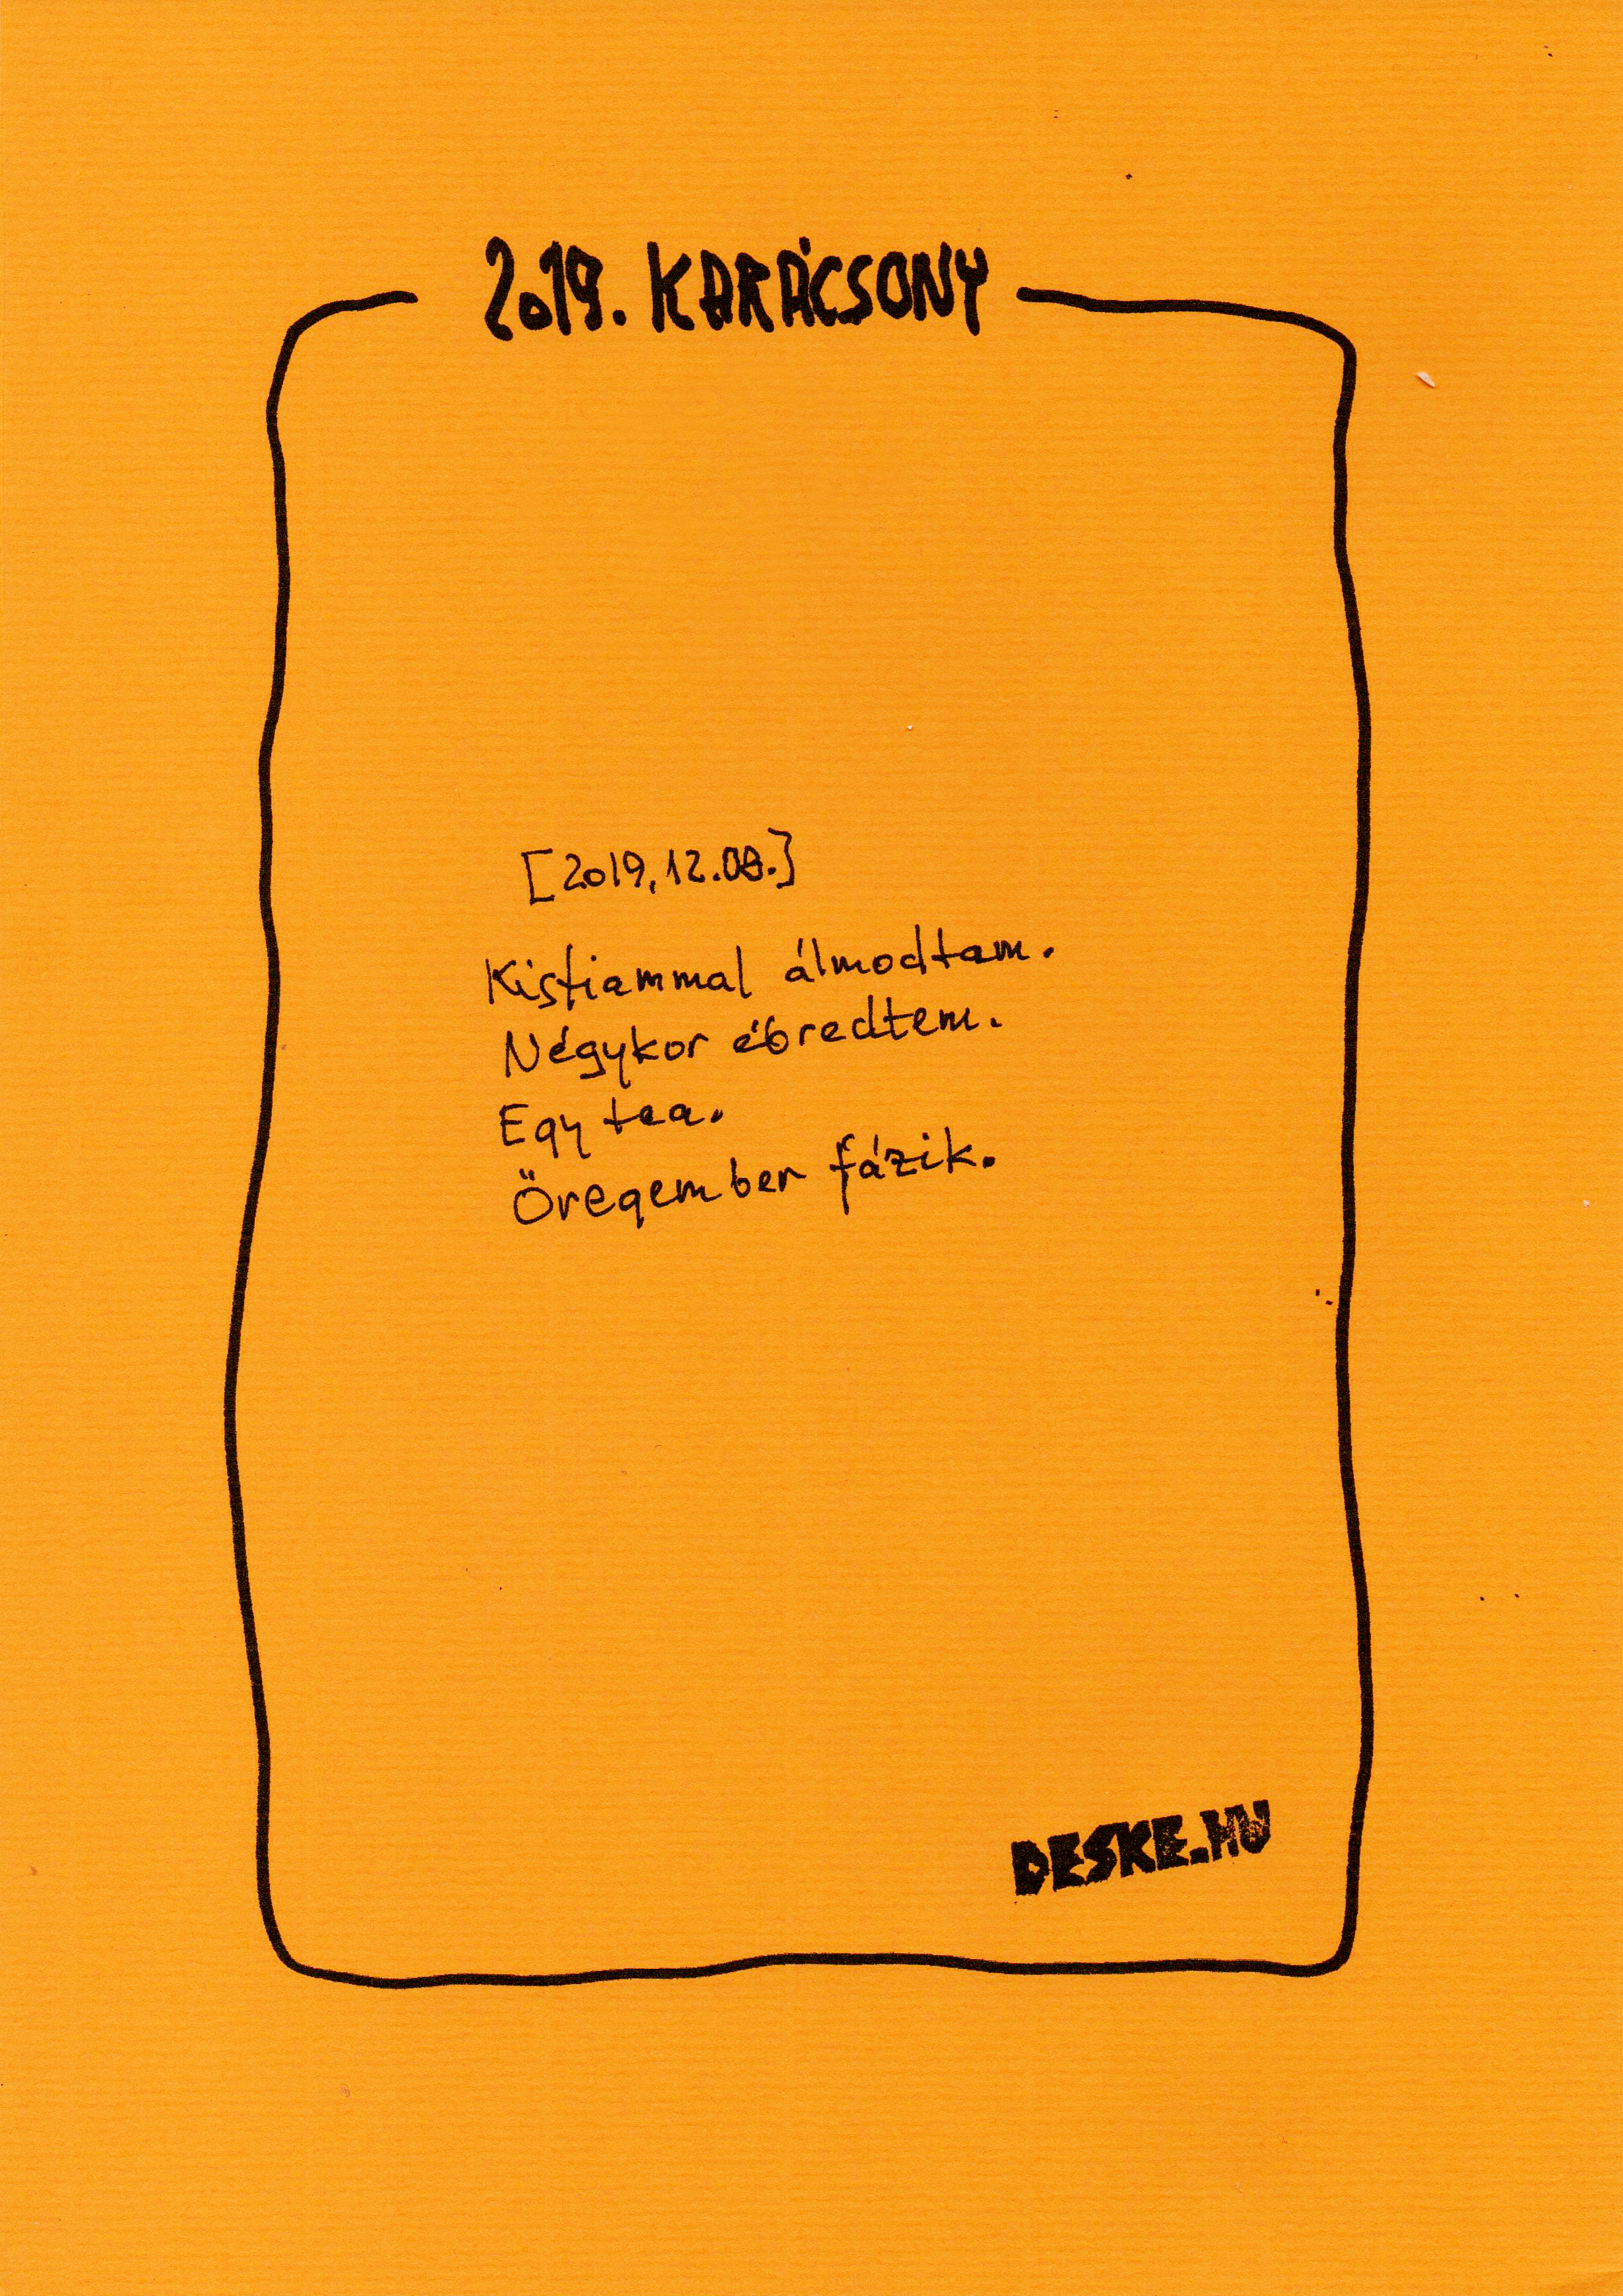 2019. KARÁCSONY
[2019.12.08.]
Kisfiammal álmodtam.
Négykor ébredtem.
Egy tea.
Öregember fázik.
DESKE.HU